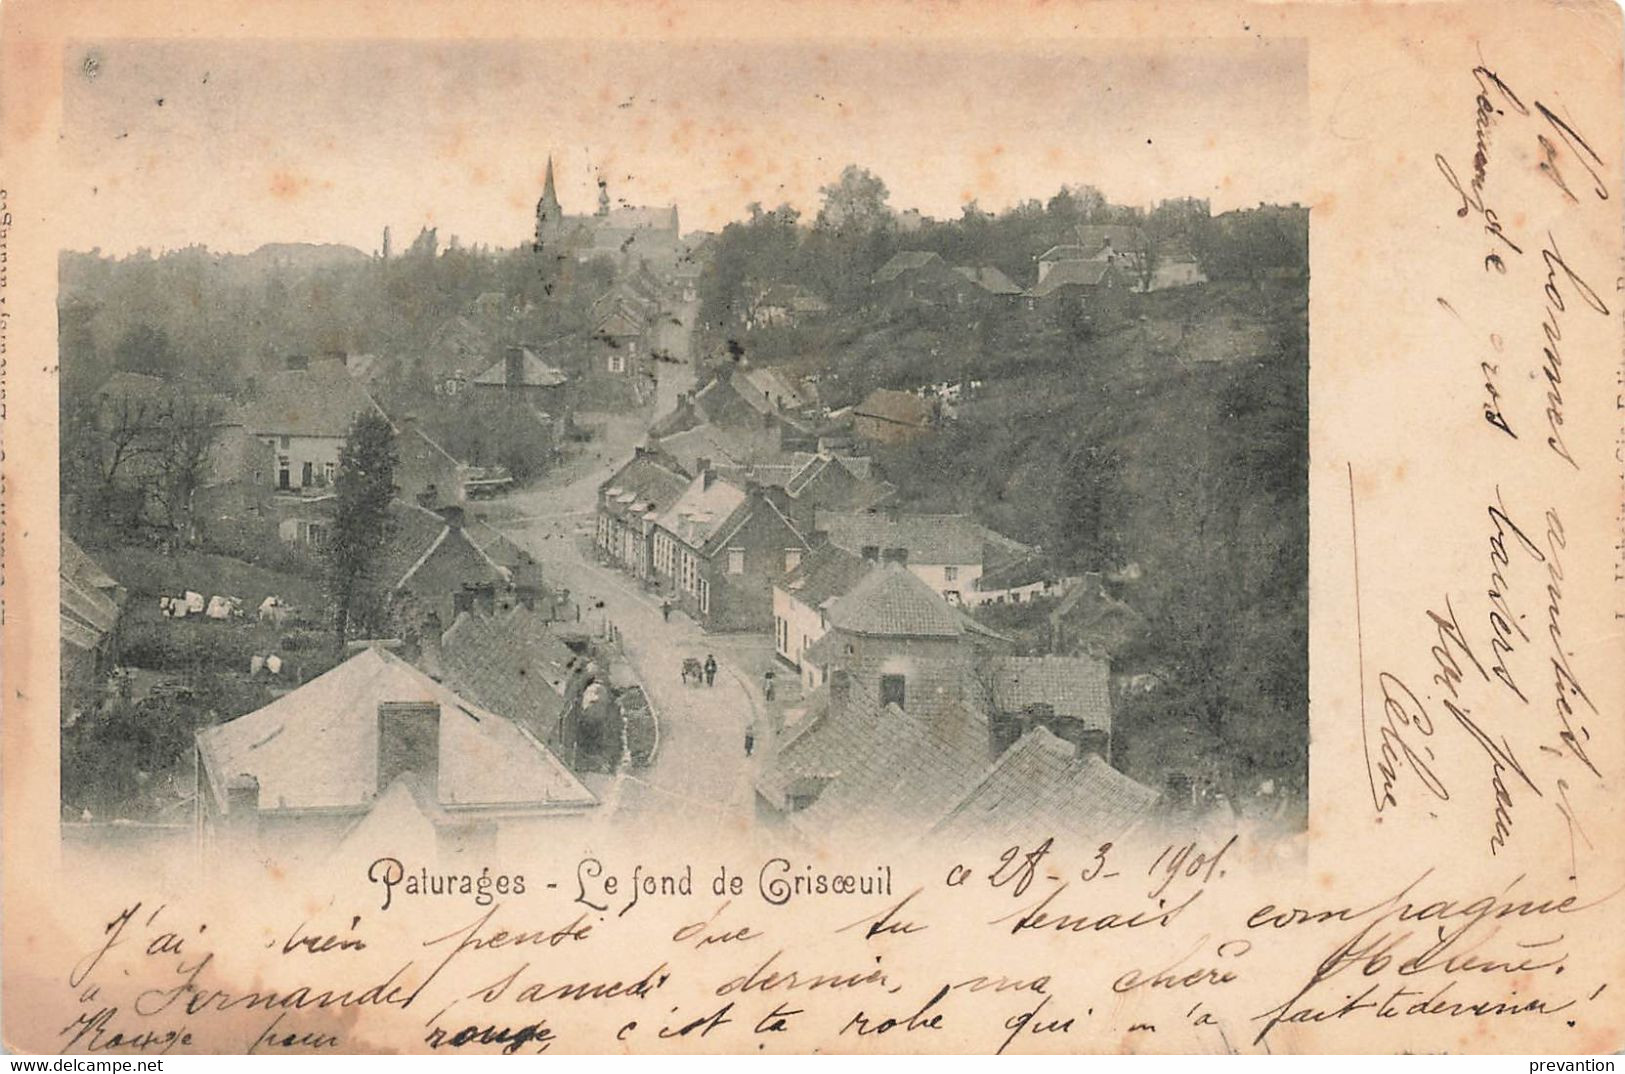 Paturages - Le fond de Grisœuil
ce 28-3-1901.
J'ai bien pensé que tu tenais compagnie
à Fernande, samedi dernier, ma chère Hélène.
Rouge pour rouge, c'est ta robe qui m'a fait te deviner!
Vos bonnes amitiés, et
de gros baisers pour
Céline.
Editeurs, Paturages
prevantion